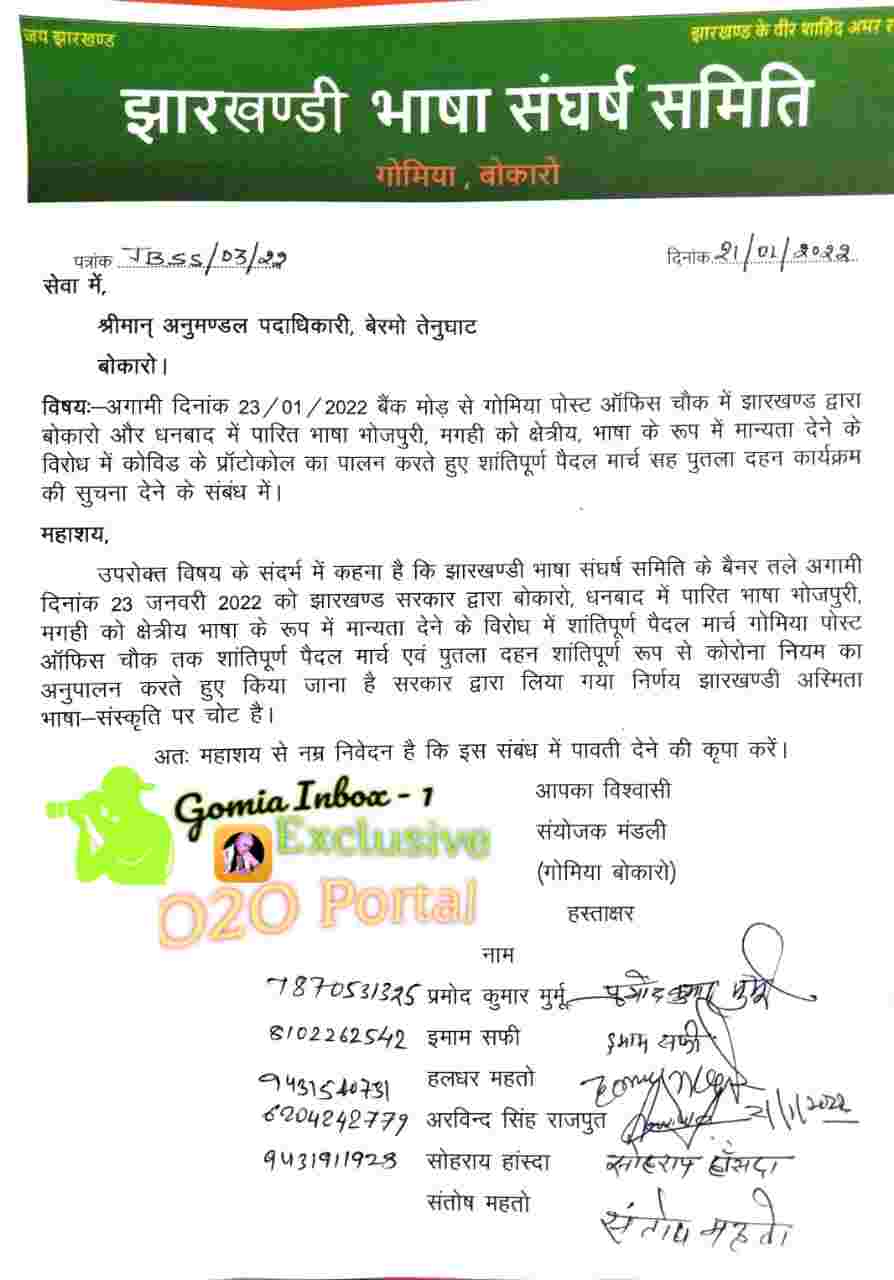 जय झारखण्ड
झारखण्ड के वीर शाहिद अमर र
झारखण्डी भाषा संघर्ष समिति
गोमिया , बोकारो
पत्रांक JBSS/03/22
दिनांक 21/01/2022
सेवा में,
श्रीमान् अनुमण्डल पदाधिकारी, बेरमो तेनुघाट
बोकारो।
विषयः–अगामी दिनांक 23/01/2022 बैंक मोड़ से गोमिया पोस्ट ऑफिस चौक में झारखण्ड द्वारा
बोकारो और धनबाद में पारित भाषा भोजपुरी, मगही को क्षेत्रीय, भाषा के रूप में मान्यता देने के
विरोध में कोविड के प्रॉटोकोल का पालन करते हुए शांतिपूर्ण पैदल मार्च सह पुतला दहन कार्यक्रम
की सुचना देने के संबंध में।
महाशय,
उपरोक्त विषय के संदर्भ में कहना है कि झारखण्डी भाषा संघर्ष समिति के बैनर तले अगामी
दिनांक 23 जनवरी 2022 को झारखण्ड सरकार द्वारा बोकारो, धनबाद में पारित भाषा भोजपुरी,
मगही को क्षेत्रीय भाषा के रूप में मान्यता देने के विरोध में शांतिपूर्ण पैदल मार्च गोमिया पोस्ट
ऑफिस चौक तक शांतिपूर्ण पैदल मार्च एवं पुतला दहन शांतिपूर्ण रूप से कोरोना नियम का
अनुपालन करते हुए किया जाना है सरकार द्वारा लिया गया निर्णय झारखण्डी अस्मिता
भाषा–संस्कृति पर चोट है।
अतः महाशय से नम्र निवेदन है कि इस संबंध में पावती देने की कृपा करें।
Gomia Inbox - 1
Exclusive
O2O Portal
आपका विश्वासी
संयोजक मंडली
(गोमिया बोकारो)
हस्ताक्षर
नाम
7870531325 प्रमोद कुमार मुर्मू प्रमोद कुमार मुर्मू
8102262542 इमाम सफी इमाम सफी
9431540731 हलधर महतो
6204242779 अरविन्द सिंह राजपुत 21/1/2022
9431911928 सोहराय हांस्दा सोहराय हाँसदा
संतोष महतो संतोष महतो